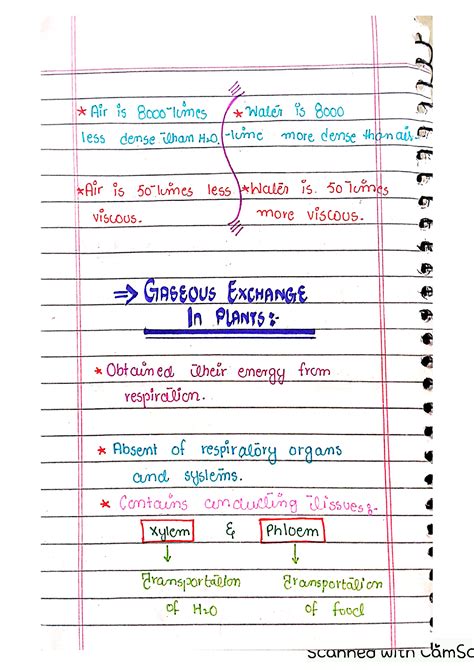 * Air is 8000-times
less dense than H₂O.
* Water is 8000
-time more dense than air.
* Air is 50-times less
viscous.
* Water is 50 times
more viscous.
⇒ GASEOUS EXCHANGE
IN PLANTS:-
* Obtained their energy from
respiration.
* Absent of respiratory organs
and systems.
* Contains conducting tissues:-
Xylem & Phloem
↓ ↓
Transportation Transportation
of H₂O of food
Scanned with CamSc